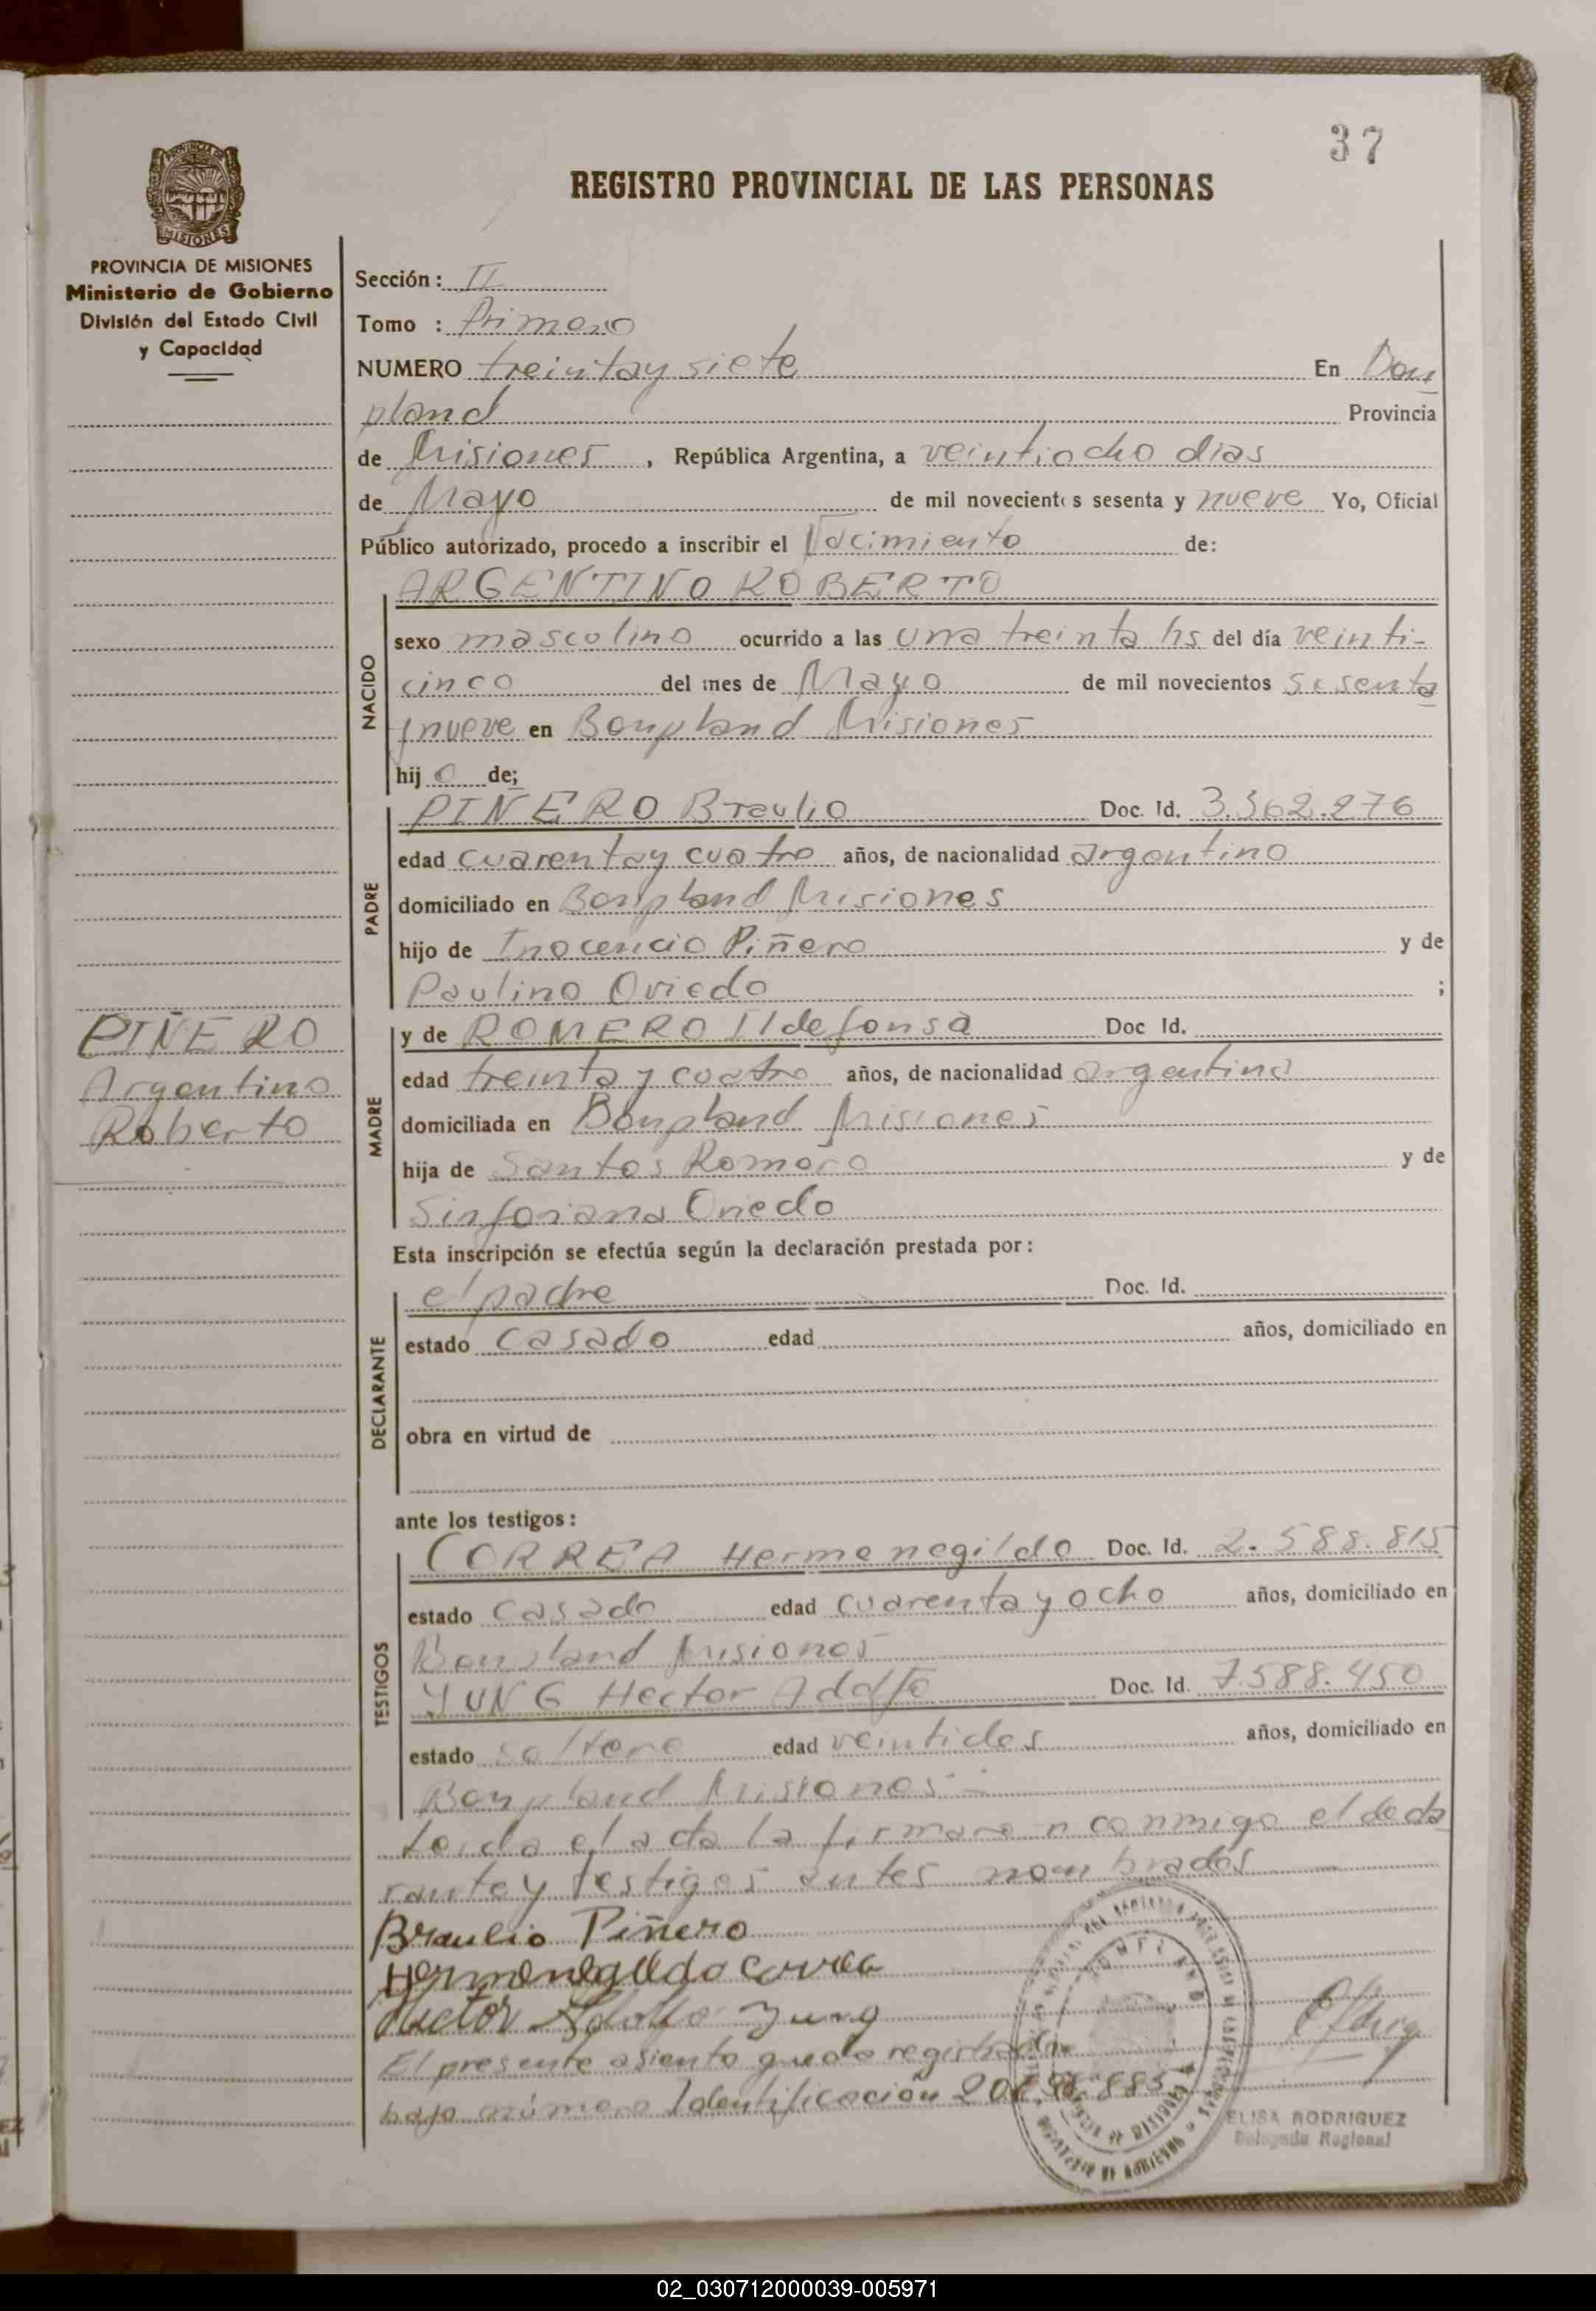 37
REGISTRO PROVINCIAL DE LAS PERSONAS
MISIONES
PROVINCIA DE MISIONES
Ministerio de Gobierno
División del Estado Civil
y Capacidad
Sección: II
Tomo : Primero
NUMERO treinta y siete En Bon
pland Provincia
de Misiones, República Argentina, a veintiocho dias
de Mayo de mil novecientos sesenta y nueve Yo, Oficial
Público autorizado, procedo a inscribir el Nacimiento de:
NACIDO
ARGENTINO ROBERTO
sexo masculino ocurrido a las una treinta hs del día veinti-
cinco del mes de Mayo de mil novecientos sesenta
y nueve en Bonpland Misiones
hijo de;
PADRE
PIÑERO Braulio Doc. Id. 3.362.276
edad cuarenta y cuatro años, de nacionalidad argentino
domiciliado en Bonpland Misiones
hijo de Inocencio Piñero y de
Paulino Oviedo ;
PIÑERO
Argentino
Roberto
MADRE
y de ROMERO Ildefonsa Doc Id.
edad treinta y cuatro años, de nacionalidad argentina
domiciliada en Bonpland Misiones
hija de Santos Romero y de
Sinforiana Oviedo
Esta inscripción se efectúa según la declaración prestada por:
DECLARANTE
el padre Doc. Id.
estado casado edad años, domiciliado en
obra en virtud de
ante los testigos:
TESTIGOS
CORREA Hermenegildo Doc. Id. 2.588.815
estado casado edad cuarenta y ocho años, domiciliado en
Bonpland Misiones
YUNG Hector Adolfo Doc. Id. 7.588.450
estado soltero edad veintidos años, domiciliado en
Bonpland Misiones
Leida el acta la firmaron conmigo el decla
rante y testigos antes nombrados
Braulio Piñero
Hermenegildo Correa
Hector Adolfo Yung
El presente asiento queda registrado
bajo número Identificación
ELISA RODRIGUEZ
Delegada Regional
02_030712000039-005971